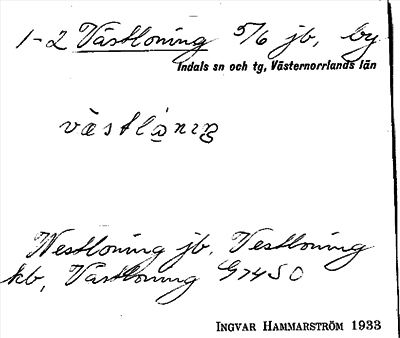 1-2 Västloning 5/6 jb, by
Indals sn och tg, Västernorrlands län
västlåning
Westloning jb. Vestloning
kb, Västloning G74SO
INGVAR HAMMARSTRÖM 1933